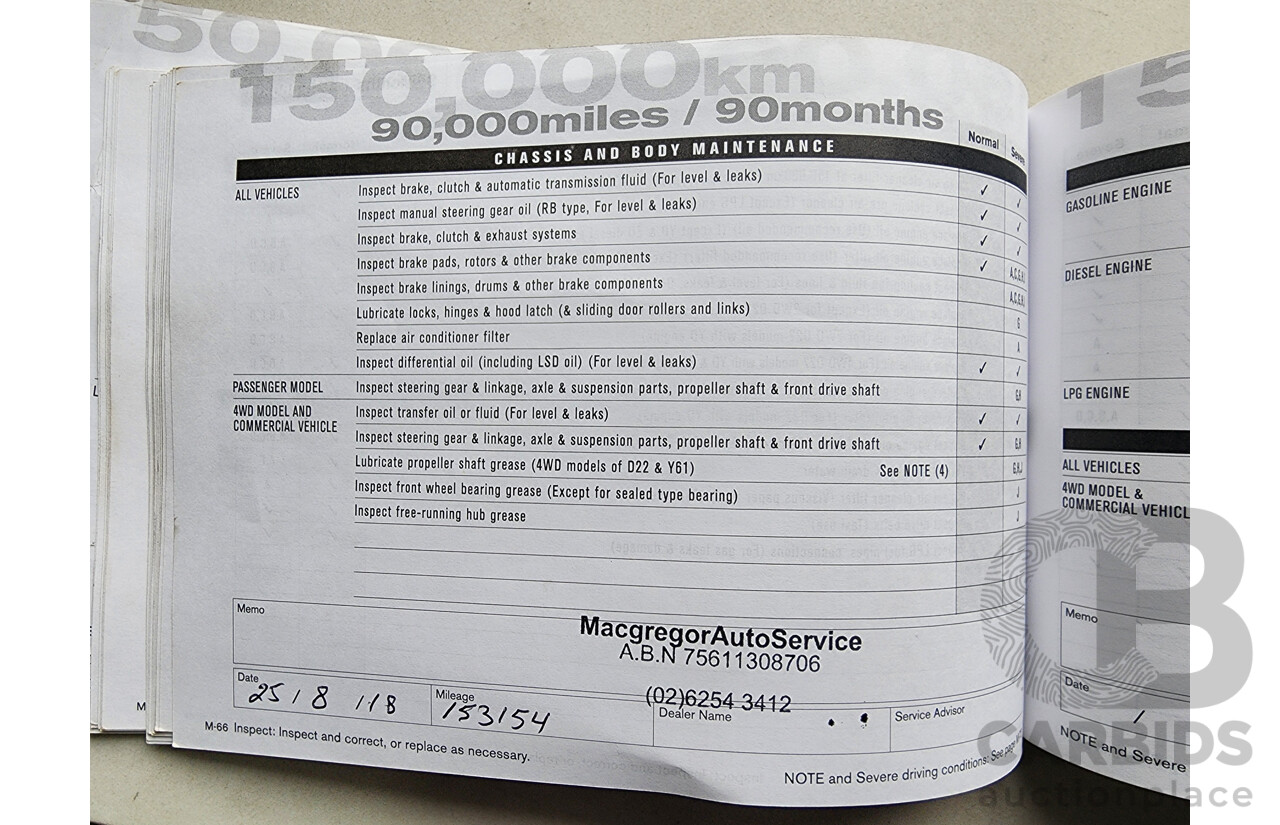 50,0
150,000km
90,000miles / 90months
Normal
CHASSIS AND BODY MAINTENANCE
ALL VEHICLES
Inspect brake, clutch & automatic transmission fluid (For level & leaks) ✓ ✓
Inspect manual steering gear oil (RB type, For level & leaks) ✓ ✓
Inspect brake, clutch & exhaust systems ✓ ✓
Inspect brake pads, rotors & other brake components ✓
Inspect brake linings, drums & other brake components
Lubricate locks, hinges & hood latch (& sliding door rollers and links) G
Replace air conditioner filter A
Inspect differential oil (including LSD oil) (For level & leaks) ✓ ✓
PASSENGER MODEL
Inspect steering gear & linkage, axle & suspension parts, propeller shaft & front drive shaft G,H
4WD MODEL AND
COMMERCIAL VEHICLE
Inspect transfer oil or fluid (For level & leaks) ✓ ✓
Inspect steering gear & linkage, axle & suspension parts, propeller shaft & front drive shaft ✓ G,H
Lubricate propeller shaft grease (4WD models of D22 & Y61) See NOTE (4) G,H,J
Inspect front wheel bearing grease (Except for sealed type bearing) J
Inspect free-running hub grease J
Memo
MacgregorAutoService
A.B.N 75611308706
(02)6254 3412
Date 25/8/18
Mileage 153154
Dealer Name
Service Advisor
M-66 Inspect: Inspect and correct, or replace as necessary.
NOTE and Severe driving conditions: See page
15
GASOLINE ENGINE
DIESEL ENGINE
LPG ENGINE
ALL VEHICLES
4WD MODEL &
COMMERCIAL VEHICL
Memo
Date
NOTE and Severe
CB
CARBIDS
auctionplace